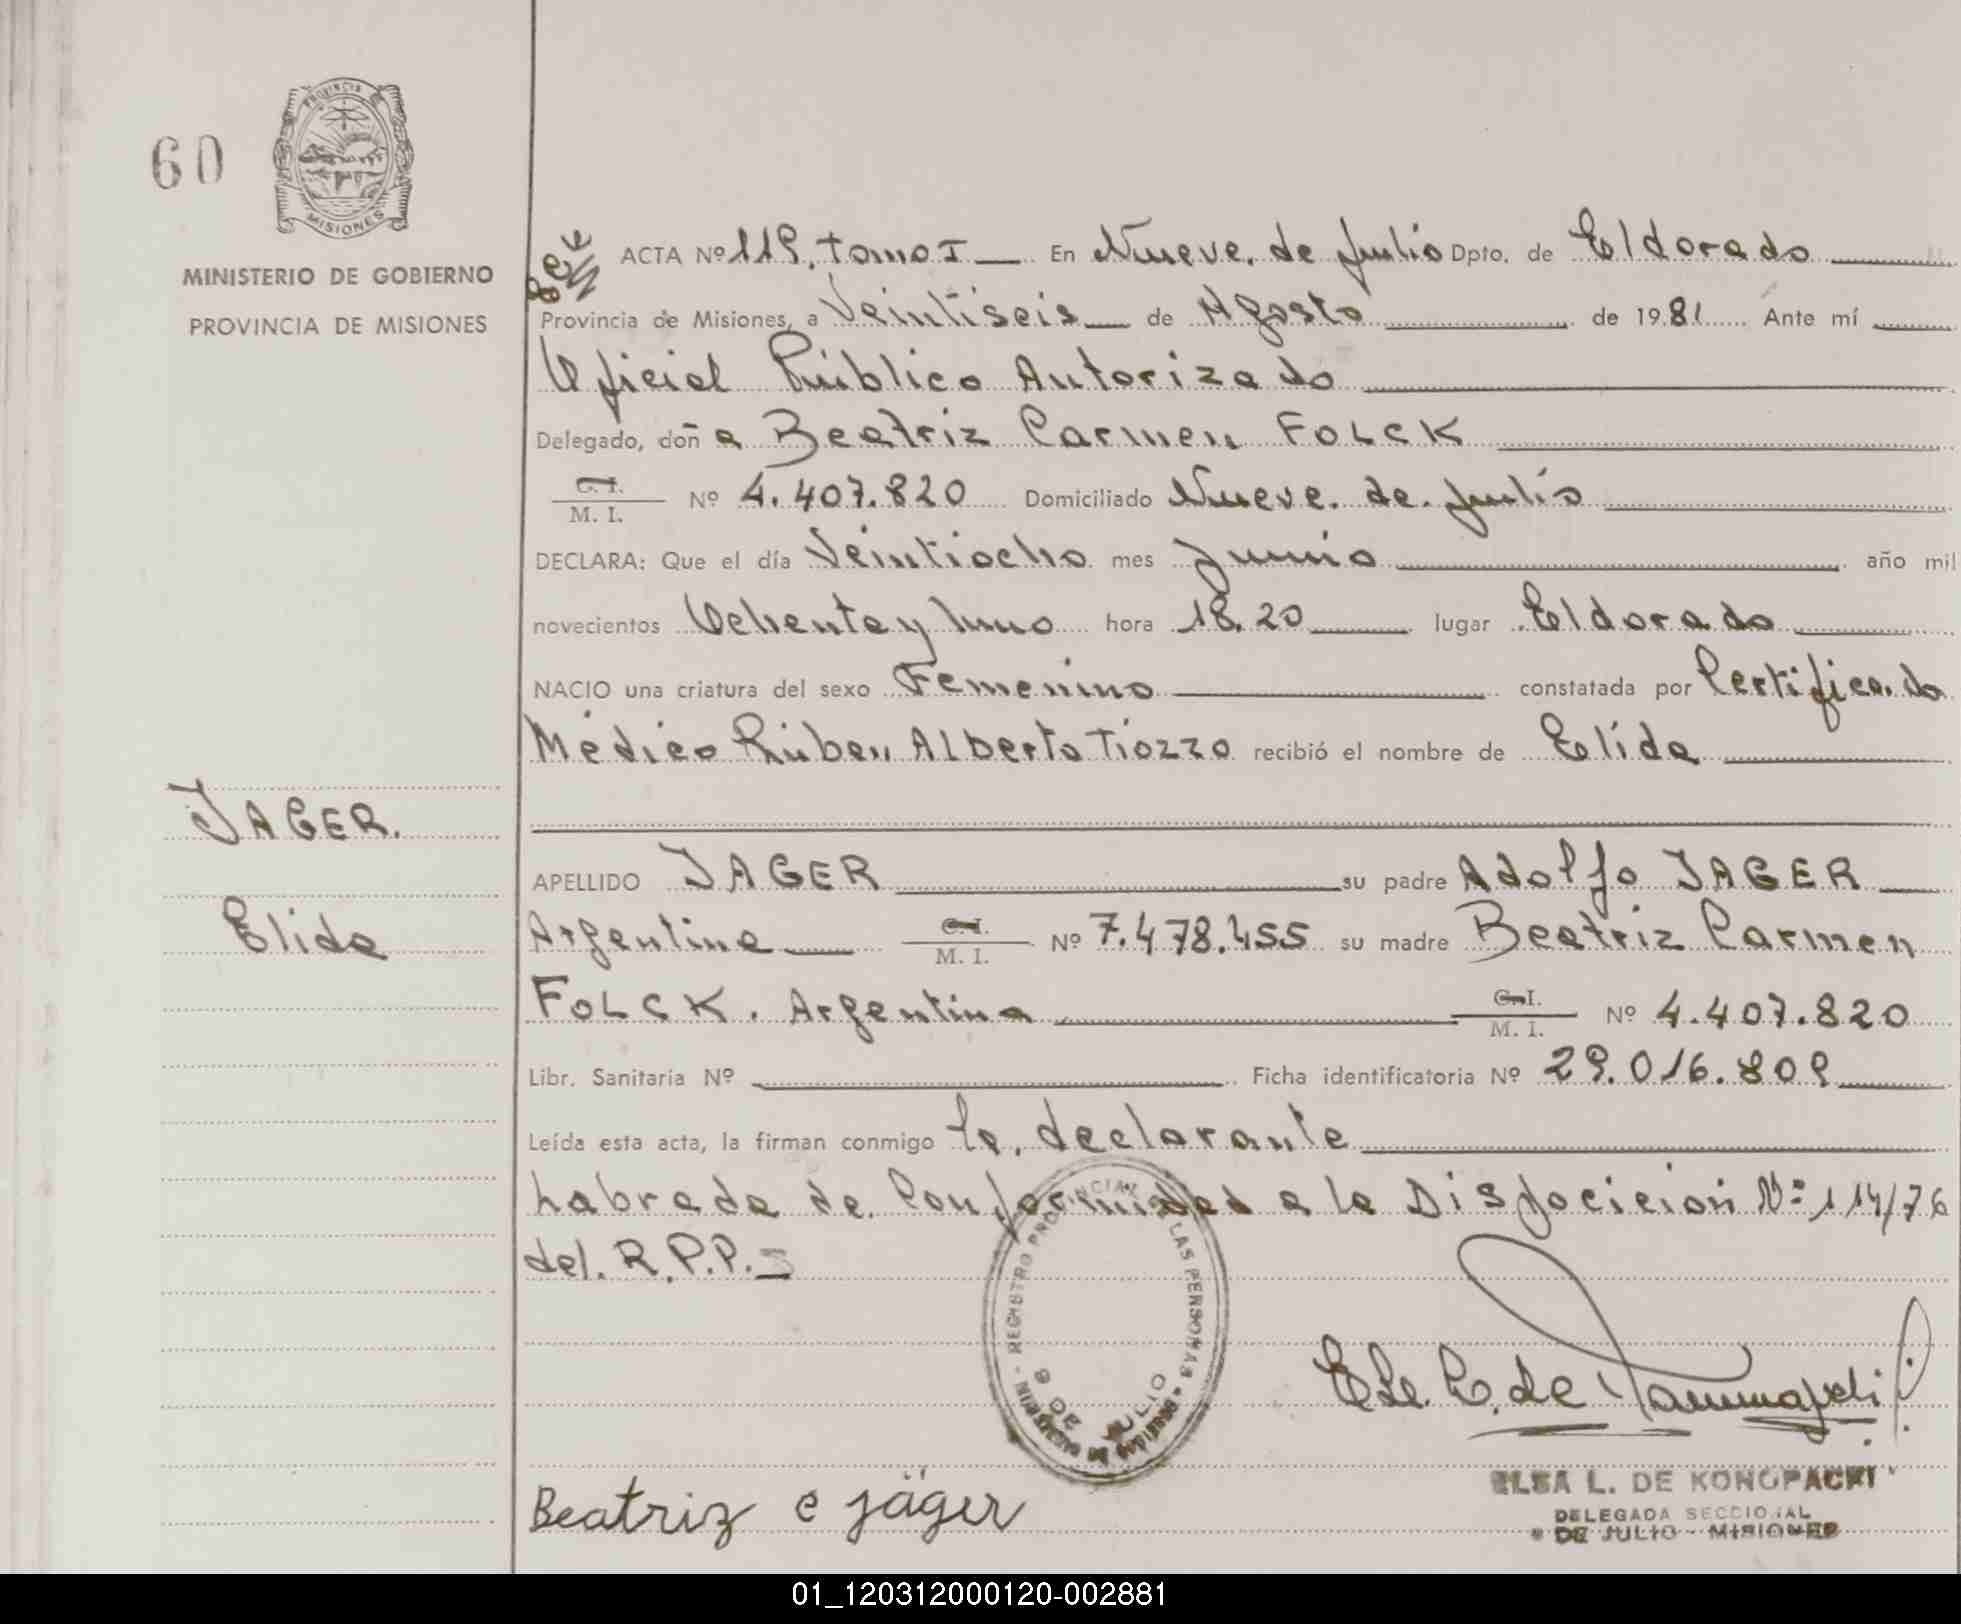 60
PROVINCIA DE
MISIONES
MINISTERIO DE GOBIERNO
PROVINCIA DE MISIONES
ACTA Nº 119. tomo I En Nueve. de Julio Dpto. de Eldorado
Provincia de Misiones, a Veintiseis de Agosto de 1981 Ante mí
Oficial Público Autorizado
Delegado, doña Beatriz Carmen FOLCK
C. I.
M. I. Nº 4.407.820 Domiciliado Nueve. de. Julio
DECLARA: Que el día Veintiocho mes Junio año mil
novecientos Ochenta y Uno hora 18.20 lugar Eldorado
NACIO una criatura del sexo Femenino constatada por Certificado
Médico Rúben Alberto Tiozzo recibió el nombre de Elída
JAGER.
Elida
APELLIDO JAGER su padre Adolfo JAGER
Argentina C. I. M. I. Nº 7.478.455 su madre Beatriz Carmen
FOLCK. Argentina C. I. M. I. Nº 4.407.820
Libr. Sanitaria Nº Ficha identificatoria Nº 29.016.809
Leída esta acta, la firman conmigo la. declarante
Labrada de Conformidad a la Disposicición Nº 114/76
del. R.P.P.
REGISTRO PROVINCIAL DE LAS PERSONAS
9 DE JULIO
Beatriz C Jäger
ELSA L. DE KONOPACKI
DELEGADA SECCIONAL
9 DE JULIO - MISIONES
01_120312000120-002881